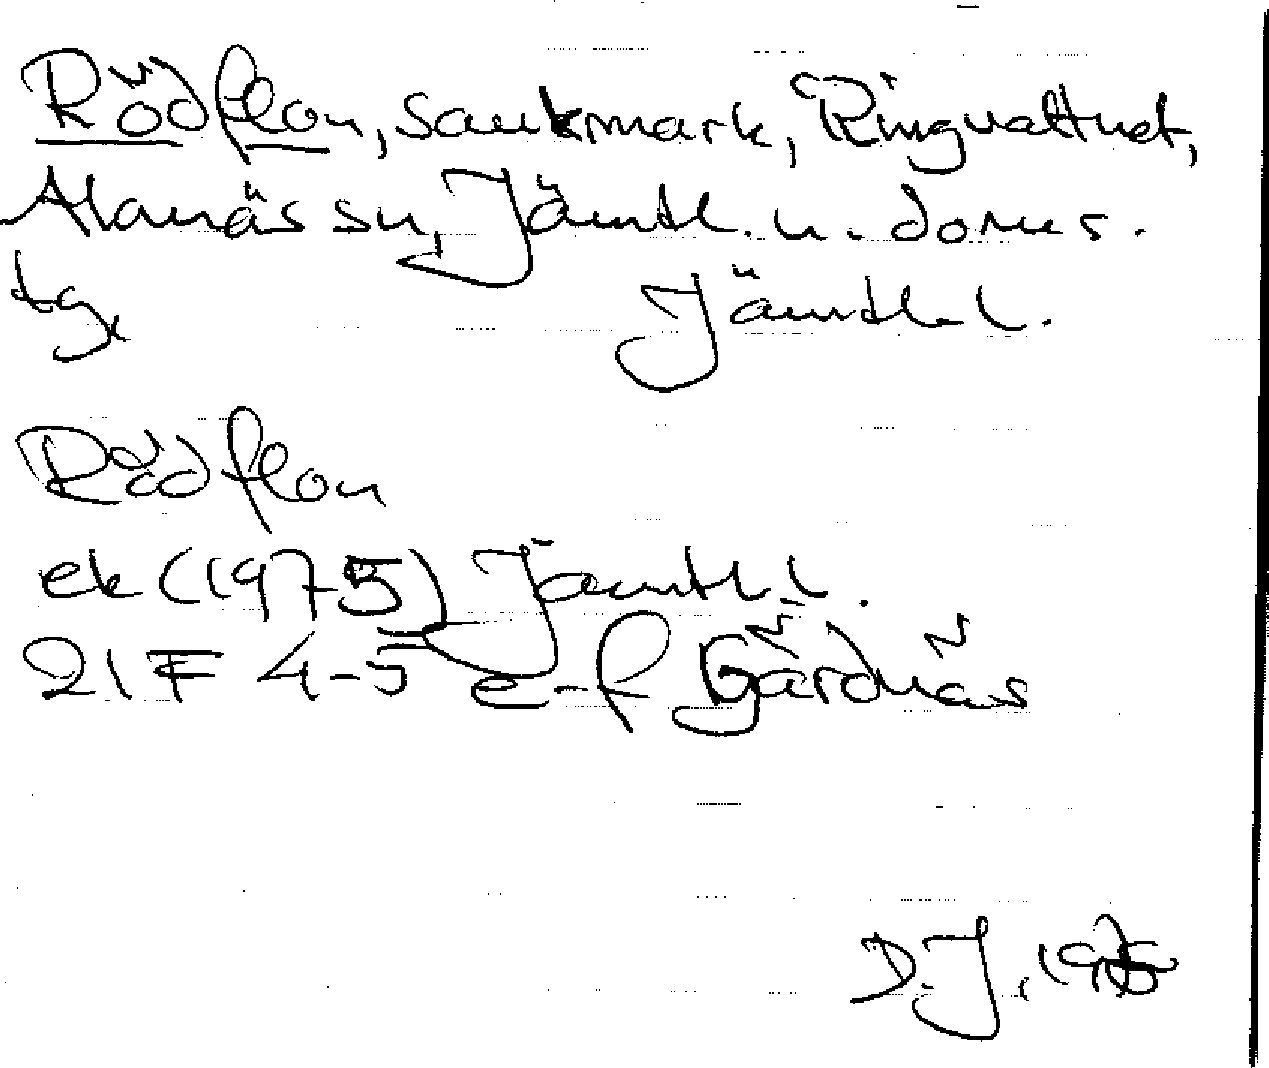 Rödflon, sankmark, Ringvattnet,
Alanäs sn, Jämtl. n. doms.
tg, Jämtl. l.
Rödflon
ek (1975) Jämtl. l.
21 F 4-5 e-f Gärdnäs
D.J. 1975